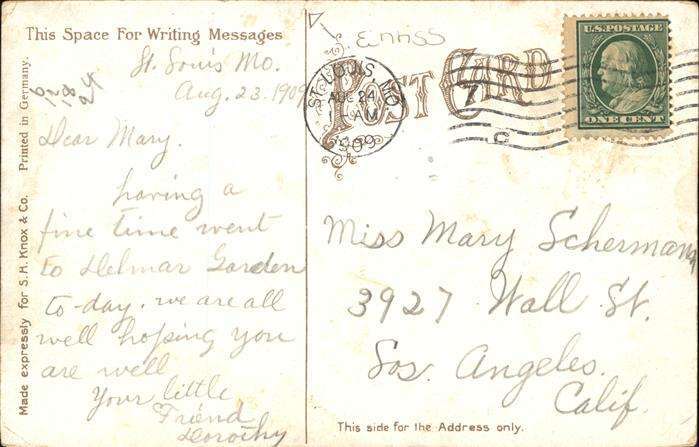 This Space For Writing Messages
St. Louis Mo.
Aug. 23. 1909
6
12
18
24
Dear Mary.
having a
fine time went
to Delmar Garden
to-day. we are all
well hoping you
are well
Your little
Friend
Dorothy
Printed in Germany.
Made expressly for S. H. Knox & Co.
POST CARD
ST. LOUIS, MO.
AUG 24
AM
1909
7
C
U.S. POSTAGE
ONE CENT
Miss Mary Scherman
3927 Wall St.
Los. Angeles.
Calif.
This side for the Address only.